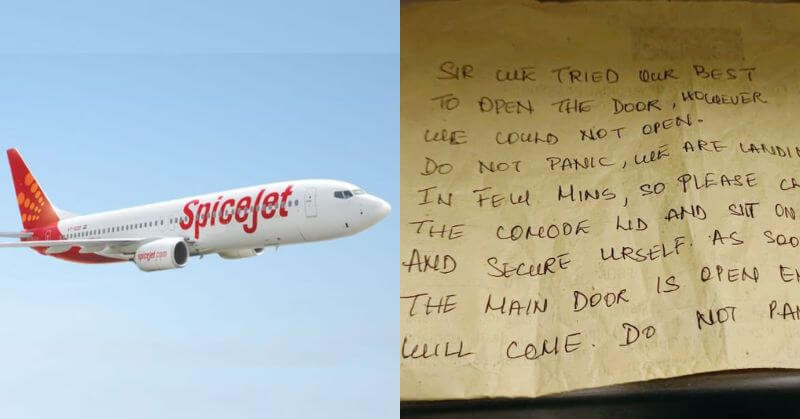 SpiceJet
spicejet.com
SIR WE TRIED OUR BEST
TO OPEN THE DOOR, HOWEVER
WE COULD NOT OPEN.
DO NOT PANIC, WE ARE LANDIN
IN FEW MINS, SO PLEASE C
THE COMODE LID AND SIT ON
AND SECURE URSELF. AS SOO
THE MAIN DOOR IS OPEN EN
WILL COME. DO NOT PAN